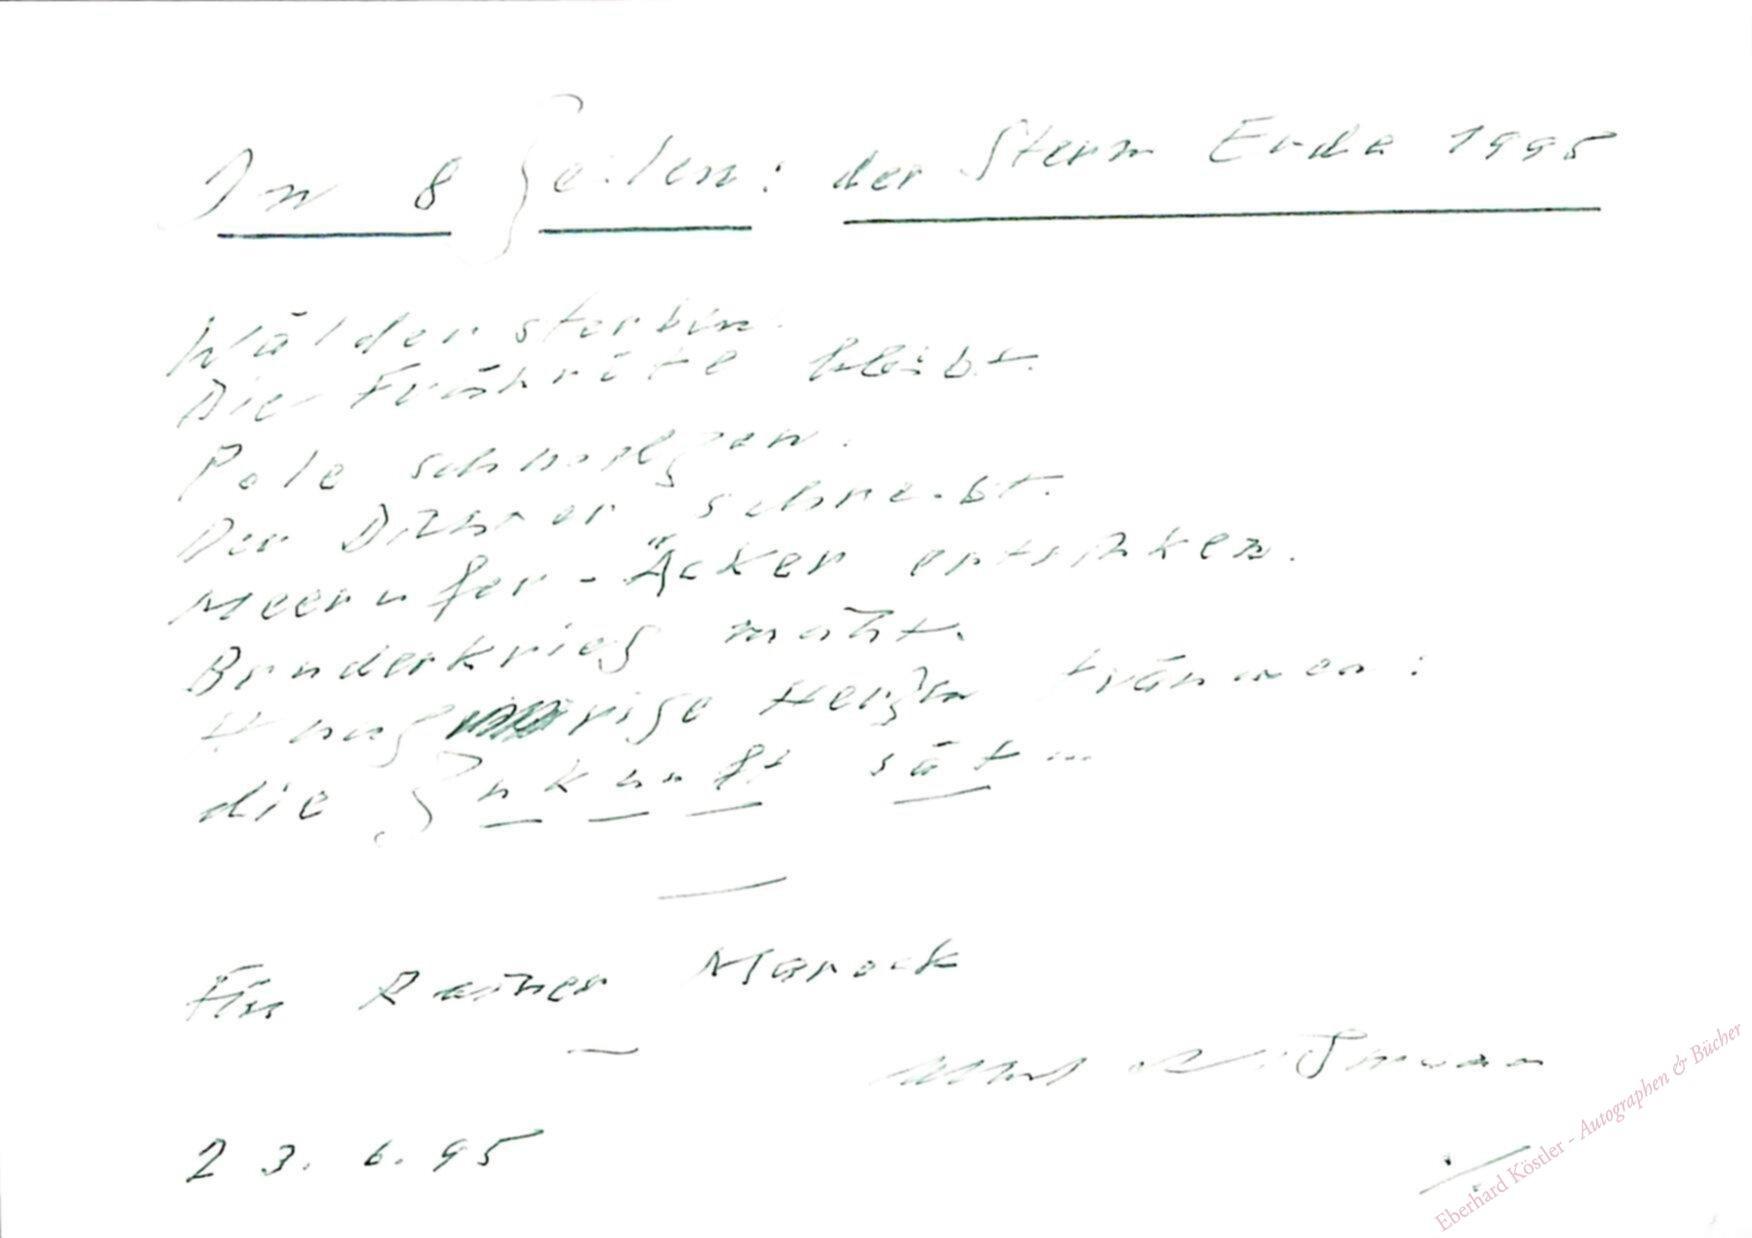 In 8 Zeilen: der Stern Erde 1995
Wälder sterben.
Die Frühröte bleibt.
Pole schmelzen.
Der Dichter schreibt.
Meerufer-Äcker ertrinken.
Bruderkrieg mäht.
Hungrige Herzen träumen:
die Zukunft sät...
Für Rainer Mareck
23. 6. 95
Eberhard Köstler - Autographen & Bücher